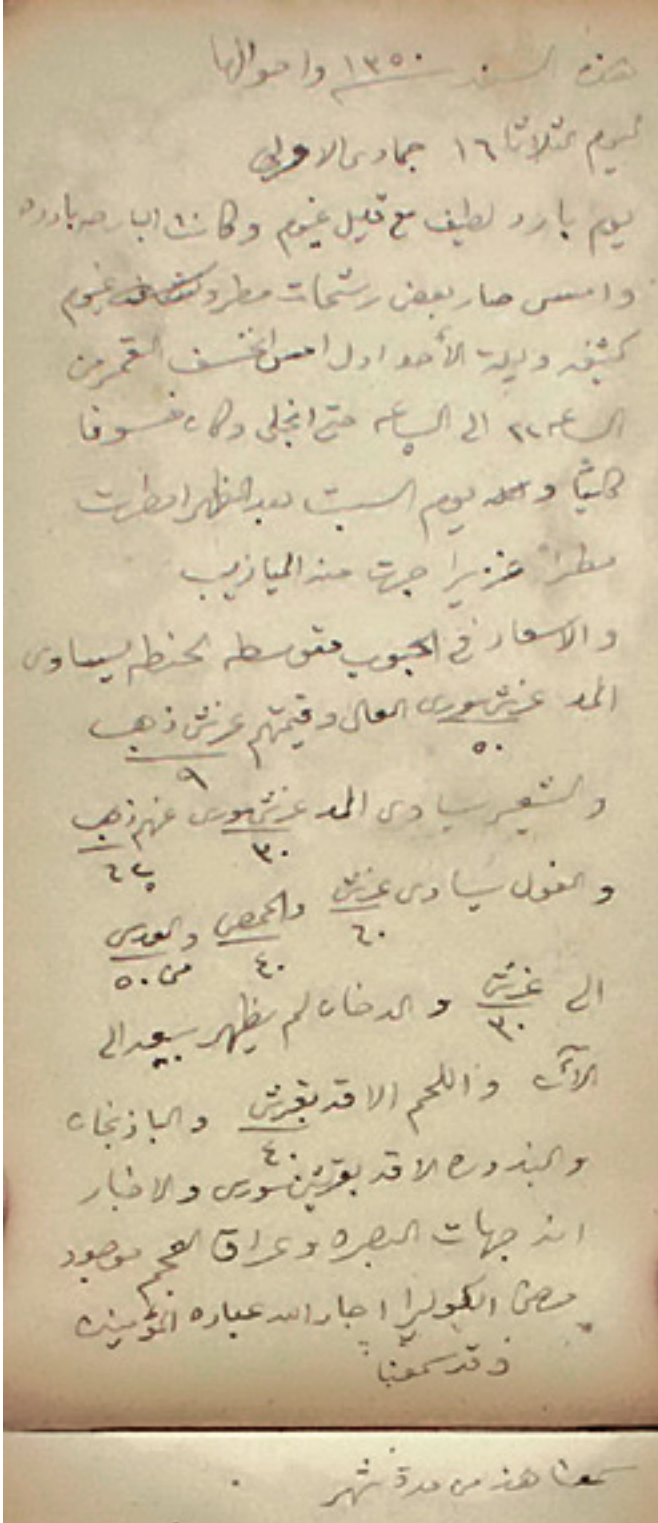 هذه السنة ١٣٥٠ واحوالها
ليوم الثلاثا ١٦ جمادى الاولى
يوم بارد لطيف مع قليل غيوم وكانت البارحه بارده
وامس صار بعض رشحات مطر و غيوم
كثيفه وليلة الأحد اول امس انخسف القمر من
الساعه ٢ الى الساعه حتى انجلى وكان خسوفا
كليًا و يوم السبت بعد الظهر امطرت
مطراً غزيرا جرت منه الميازيب
والاسعار في الحبوب متوسطه الحنطه يساوى
المد غرش سورى العال وقيمتهم غرش ذهب
٥٠ ٩
والشعير يساوى المد غرش سورى عنهم ذهب
٣٠
والفول يساوى غرش والحمص والعدس
٦٠ ٤٠ من ٥٠
الى غرش والدخان لم يظهر بيعه الى
٣٠
الآن واللحم الاقه بقرش والباذنجان
٤٠
والبندوره الاقه بقرشين سورى والاخبار
ان جهات البصره وعراق العجم موجود
مرض الكوليرا اجار الله عباده المؤمنين
وقد سمعنا
سمعنا هذا من مدة شهر